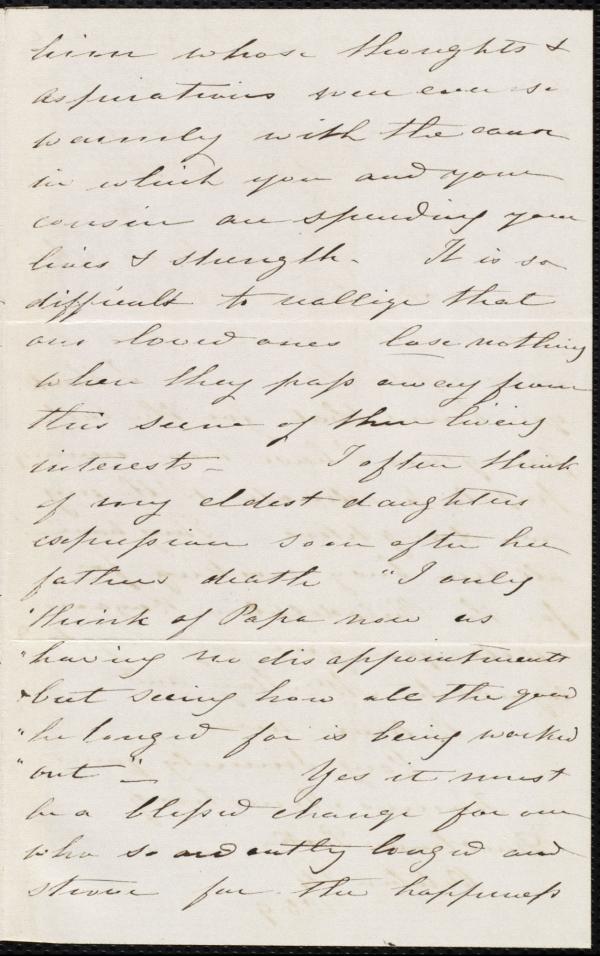 him whose thoughts &
aspirations were ever so
warmly with the cause
in which you and your
cousin are spending your
lives & strength. It is so
difficult to reallize that
our loved ones lose nothing
when they pass away from
this scene of their living
interests_ I often think
of my eldest daughters
expression soon after her
fathers death "I only
"think of Papa now as
"having no disappointments
"but seeing how all the good
"he longed for is being worked
"out"_ Yes it must
be a blessed change for one
who so ardently longed and
strove for the happiness